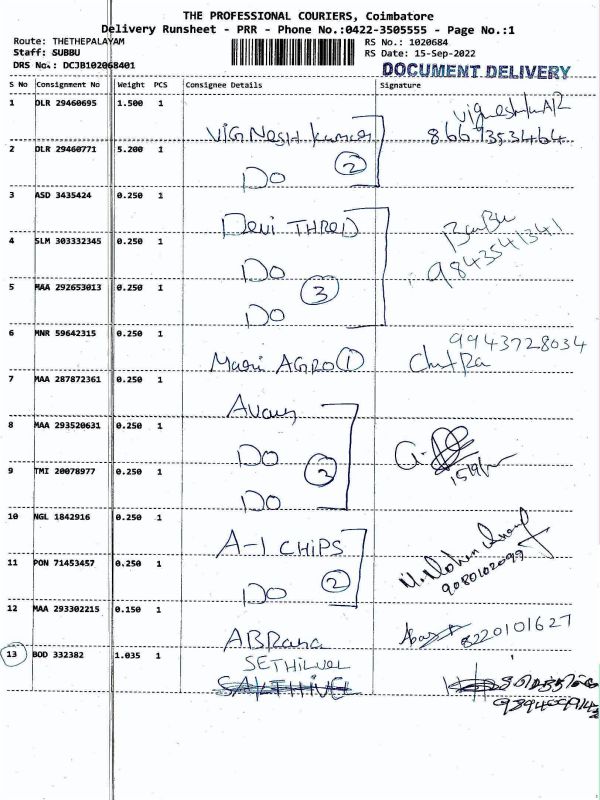 THE PROFESSIONAL COURIERS, Coimbatore
Delivery Runsheet - PRR - Phone No.:0422-3505555 - Page No.:1
Route: THETHEPALAYAM
RS No.: 1020684
Staff: SUBBU
RS Date: 15-Sep-2022
DRS No.: DCJB102068401
DOCUMENT DELIVERY
S No Consignment No Weight PCS Consignee Details Signature
1 DLR 29460695 1.500 1
VIGNESH Kumar 8667353464
2 DLR 29460771 5.200 1
DO 2
3 ASD 3435424 0.250 1
Devi THRED
4 SLM 303332345 0.250 1
DO 9843541341
5 MAA 292653013 0.250 1
DO 3
6 MNR 59642315 0.250 1
9943728034
AGRO 1
7 MAA 287872361 0.250 1
8 MAA 293520631 0.250 1
DO
9 TMI 20078977 0.250 1
DO
10 NGL 1842916 0.250 1
A-1 CHIPS
11 PON 71453457 0.250 1
DO 2 9080102099
12 MAA 293302215 0.150 1
8220101627
13 BOD 332382 1.035 1